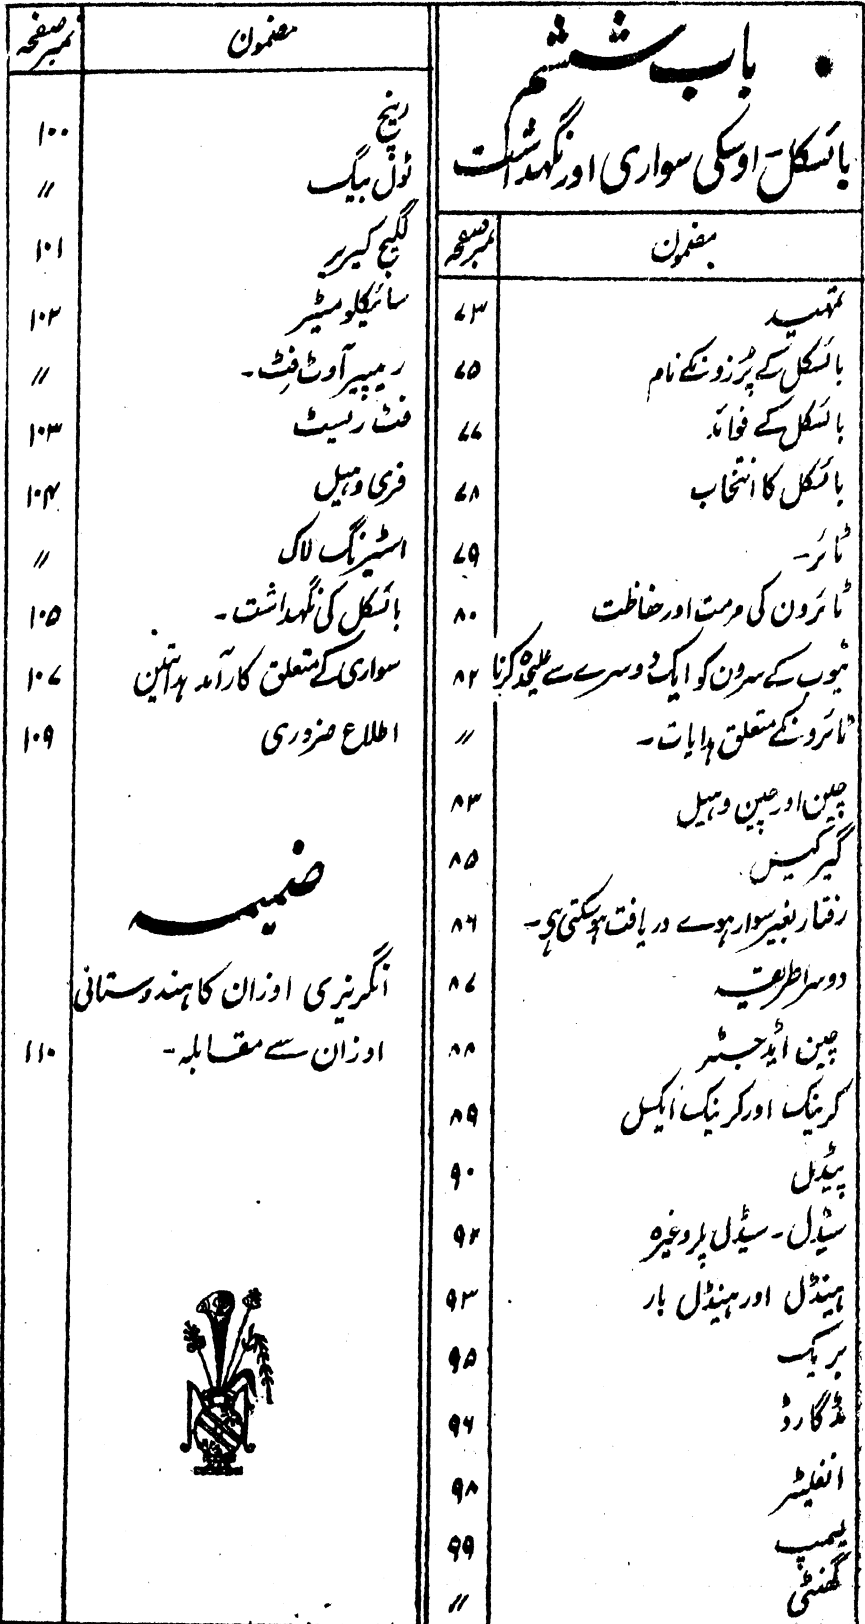 باب ششم
بائسکل۔ اوسکی سواری اور نگہداشت
مضمون نمبر صفحہ
تمہید ۷۳
بائسکل کے پرزونکے نام ۷۵
بائسکل کے فوائد ۷۷
بائسکل کا انتخاب ۷۸
ٹائر۔ ۷۹
ٹائرون کی مرمت اور حفاظت ۸۰
ٹیوب کے سرون کو ایک دوسرے سے علیحدہ کرنا ۸۲
ٹائرونکے متعلق ہدایات۔ //
چین اور چین وہیل ۸۳
گیر کیس ۸۵
رفتار بغیر سوار ہوے دریافت ہوسکتی ہی۔ ۸۶
دوسرا طریقہ ۸۷
چین ایڈجسٹر ۸۸
کرینک اور کرینک ایکسل ۸۹
پیڈل ۹۰
سیڈل۔ سیڈل پلر وغیرہ ۹۲
ہینڈل اور ہینڈل بار ۹۳
بریک ۹۵
مڈگارڈ ۹۶
انفلیٹر ۹۸
لیمپ ۹۹
گھنٹی //
مضمون نمبر صفحہ
رینچ ۱۰۰
ٹول بیگ //
لگیج کیریر ۱۰۱
سائیکلومیٹر ۱۰۲
ریپیر آوٹ فِٹ۔ //
فٹ ریسٹ ۱۰۳
فری وہیل ۱۰۴
اسٹیرنگ لاک //
بائسکل کی نگہداشت۔ ۱۰۵
سواری کے متعلق کارآمد ہدایتین ۱۰۷
اطلاع ضروری ۱۰۹
ضمیمہ
انگریزی اوزان کا ہندوستانی
اوزان سے مقابلہ۔ ۱۱۰